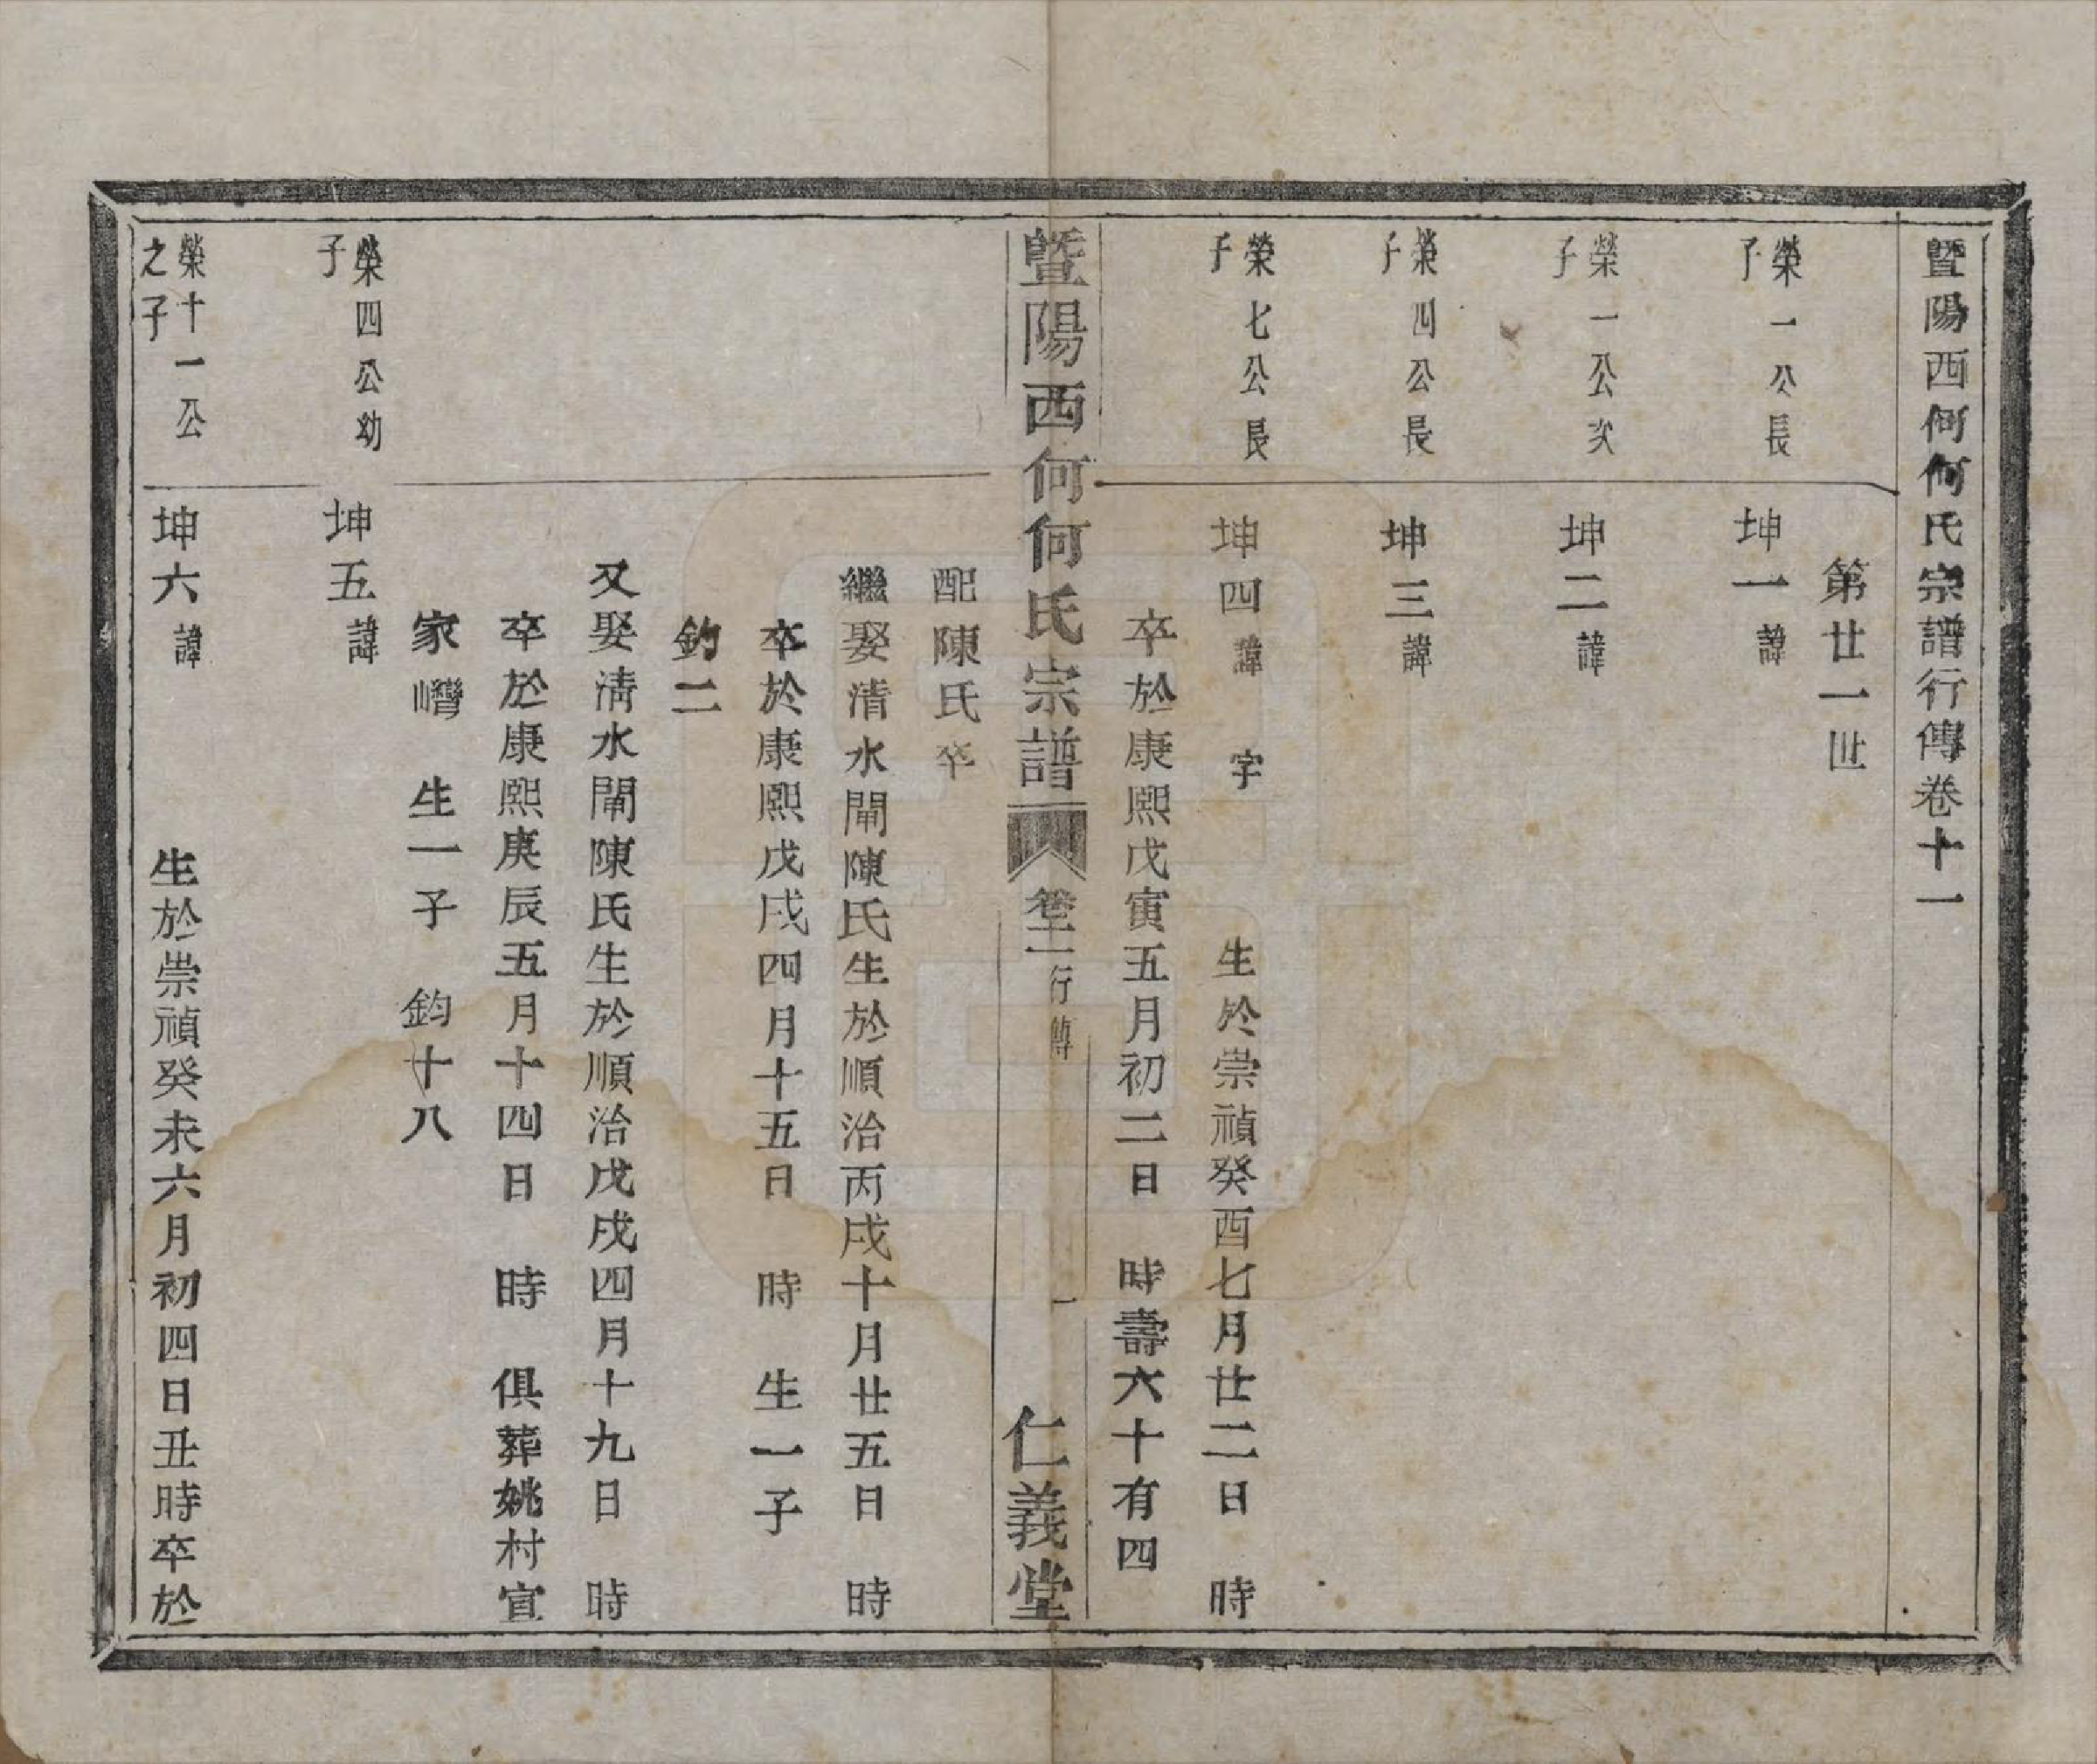 暨陽西何何氏宗譜行傳卷十一
第廿一世
榮一公長
子
坤一諱
榮一公次
子
坤二諱
榮四公長
子
坤三諱
榮七公長
子
坤四諱 字 生於崇禎癸酉七月廿二日 時
卒於康熙戊寅五月初二日 時壽六十有四
暨陽西何何氏宗譜 卷十一 行傳 一 仁義堂
配陳氏卒
繼娶清水閘陳氏生於順治丙戌十月廿五日 時
卒於康熙戊戌四月十五日 時 生一子
鈞二
又娶清水閘陳氏生於順治戊戌四月十九日 時
卒於康熙庚辰五月十四日 時 俱葬姚村宣
家嶒 生一子 鈞十八
榮四公幼
子
坤五諱
榮十一公
之子
坤六諱 生於崇禎癸未六月初四日丑時卒於